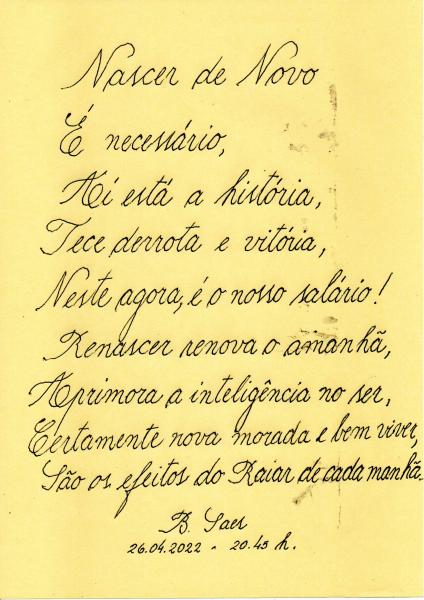 Nascer de Novo
É necessário,
Aí está a história,
Tece derrota e vitória,
Neste agora, é o nosso salário!
Renascer renova o amanhã,
Aprimora a inteligência no ser,
Certamente nova morada e bem viver,
São os efeitos do Raiar de cada manhã.
B. Saes
26.04.2022 - 20.45 h.